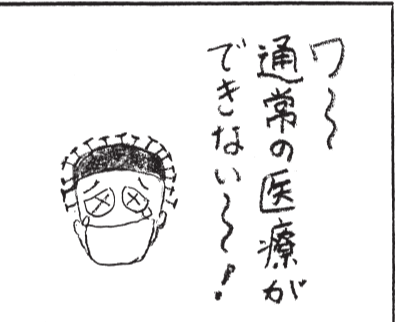 ワ〜
通常の医療が
できない〜〜!